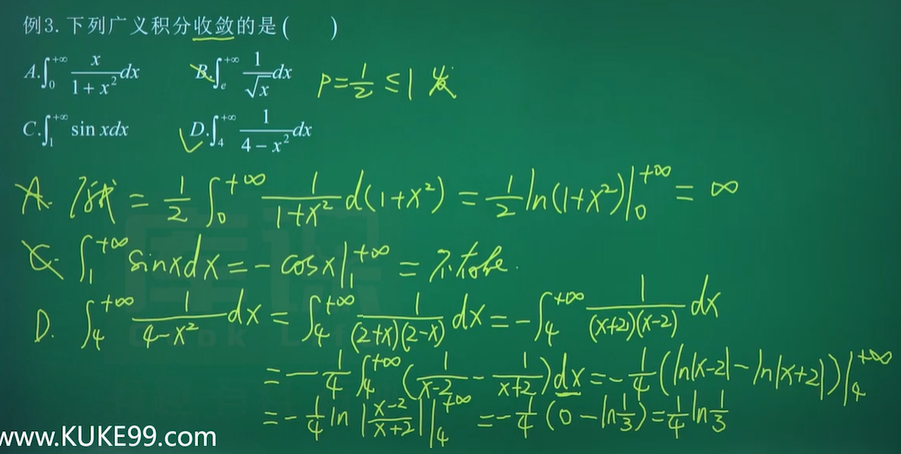 例3.下列广义积分收敛的是( )
A.∫₀^{+∞} x/(1+x²) dx B.∫ₑ^{+∞} 1/√x dx P=1/2≤1 发
C.∫₁^{+∞} sin xdx D.∫₄^{+∞} 1/(4-x²) dx
A. 原式=1/2 ∫₀^{+∞} 1/(1+x²) d(1+x²)=1/2 ln(1+x²)|₀^{+∞}=∞
C. ∫₁^{+∞} sinxdx=-cosx|₁^{+∞}=不存在.
D. ∫₄^{+∞} 1/(4-x²) dx=∫₄^{+∞} 1/((2+x)(2-x)) dx=-∫₄^{+∞} 1/((x+2)(x-2)) dx
=-1/4 ∫₄^{+∞} (1/(x-2) - 1/(x+2))dx=-1/4(ln|x-2|-ln|x+2|)|₄^{+∞}
=-1/4 ln|(x-2)/(x+2)||₄^{+∞} =-1/4(0-ln1/3)=1/4 ln1/3
www.KUKE99.com